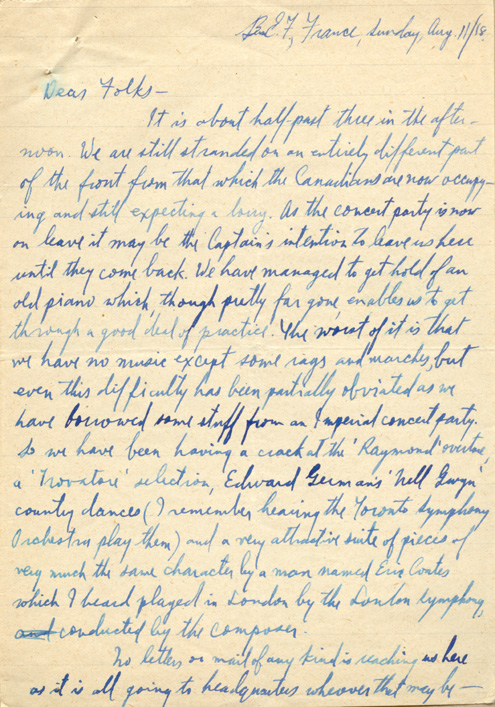 B.E.F., France, Sunday, Aug. 11/18.
Dear Folks—
It is about half-past three in the after-
noon. We are still stranded on an entirely different part
of the front from that which the Canadians are now occupy-
ing and still expecting a lorry. As the concert party is now
on leave it may be the Captain's intention to leave us here
until they come back. We have managed to get hold of an
old piano which, though pretty far gone, enables us to get
through a good deal of practice. The worst of it is that
we have no music except some rags and marches, but
even this difficulty has been partially obviated as we
have borrowed some stuff from an Imperial concert party.
So we have been having a crack at the 'Raymond' overture,
a 'Trovatore' selection, Edward German's 'Nell Gwyn'
country dances (I remember hearing the Toronto Symphony
Orchestra play them) and a very attractive suite of pieces of
very much the same character by a man named Eric Coates
which I heard played in London by the London Symphony,
and conducted by the composer.
No letters or mail of any kind is reaching us here
as it is all going to headquarters wherever that may be—